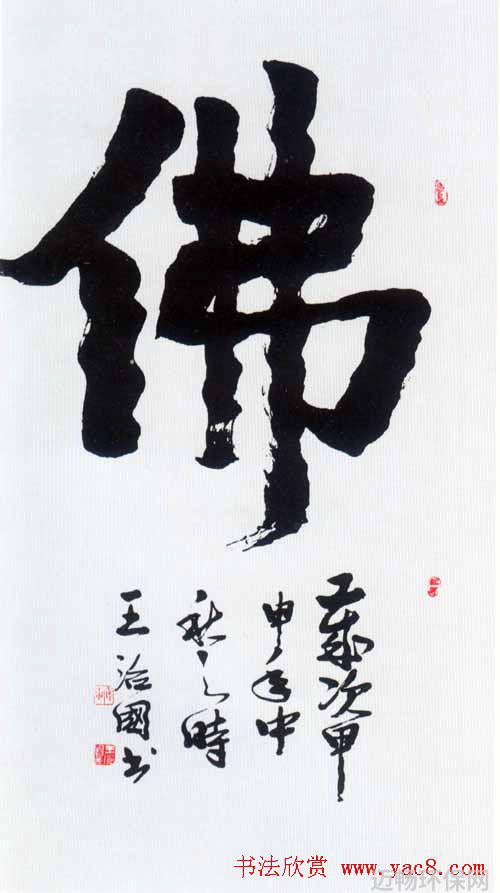 佛
歲次甲
申年中
秋之時
王治國书
书法欣赏 www.yac8.com
迈畅环保网